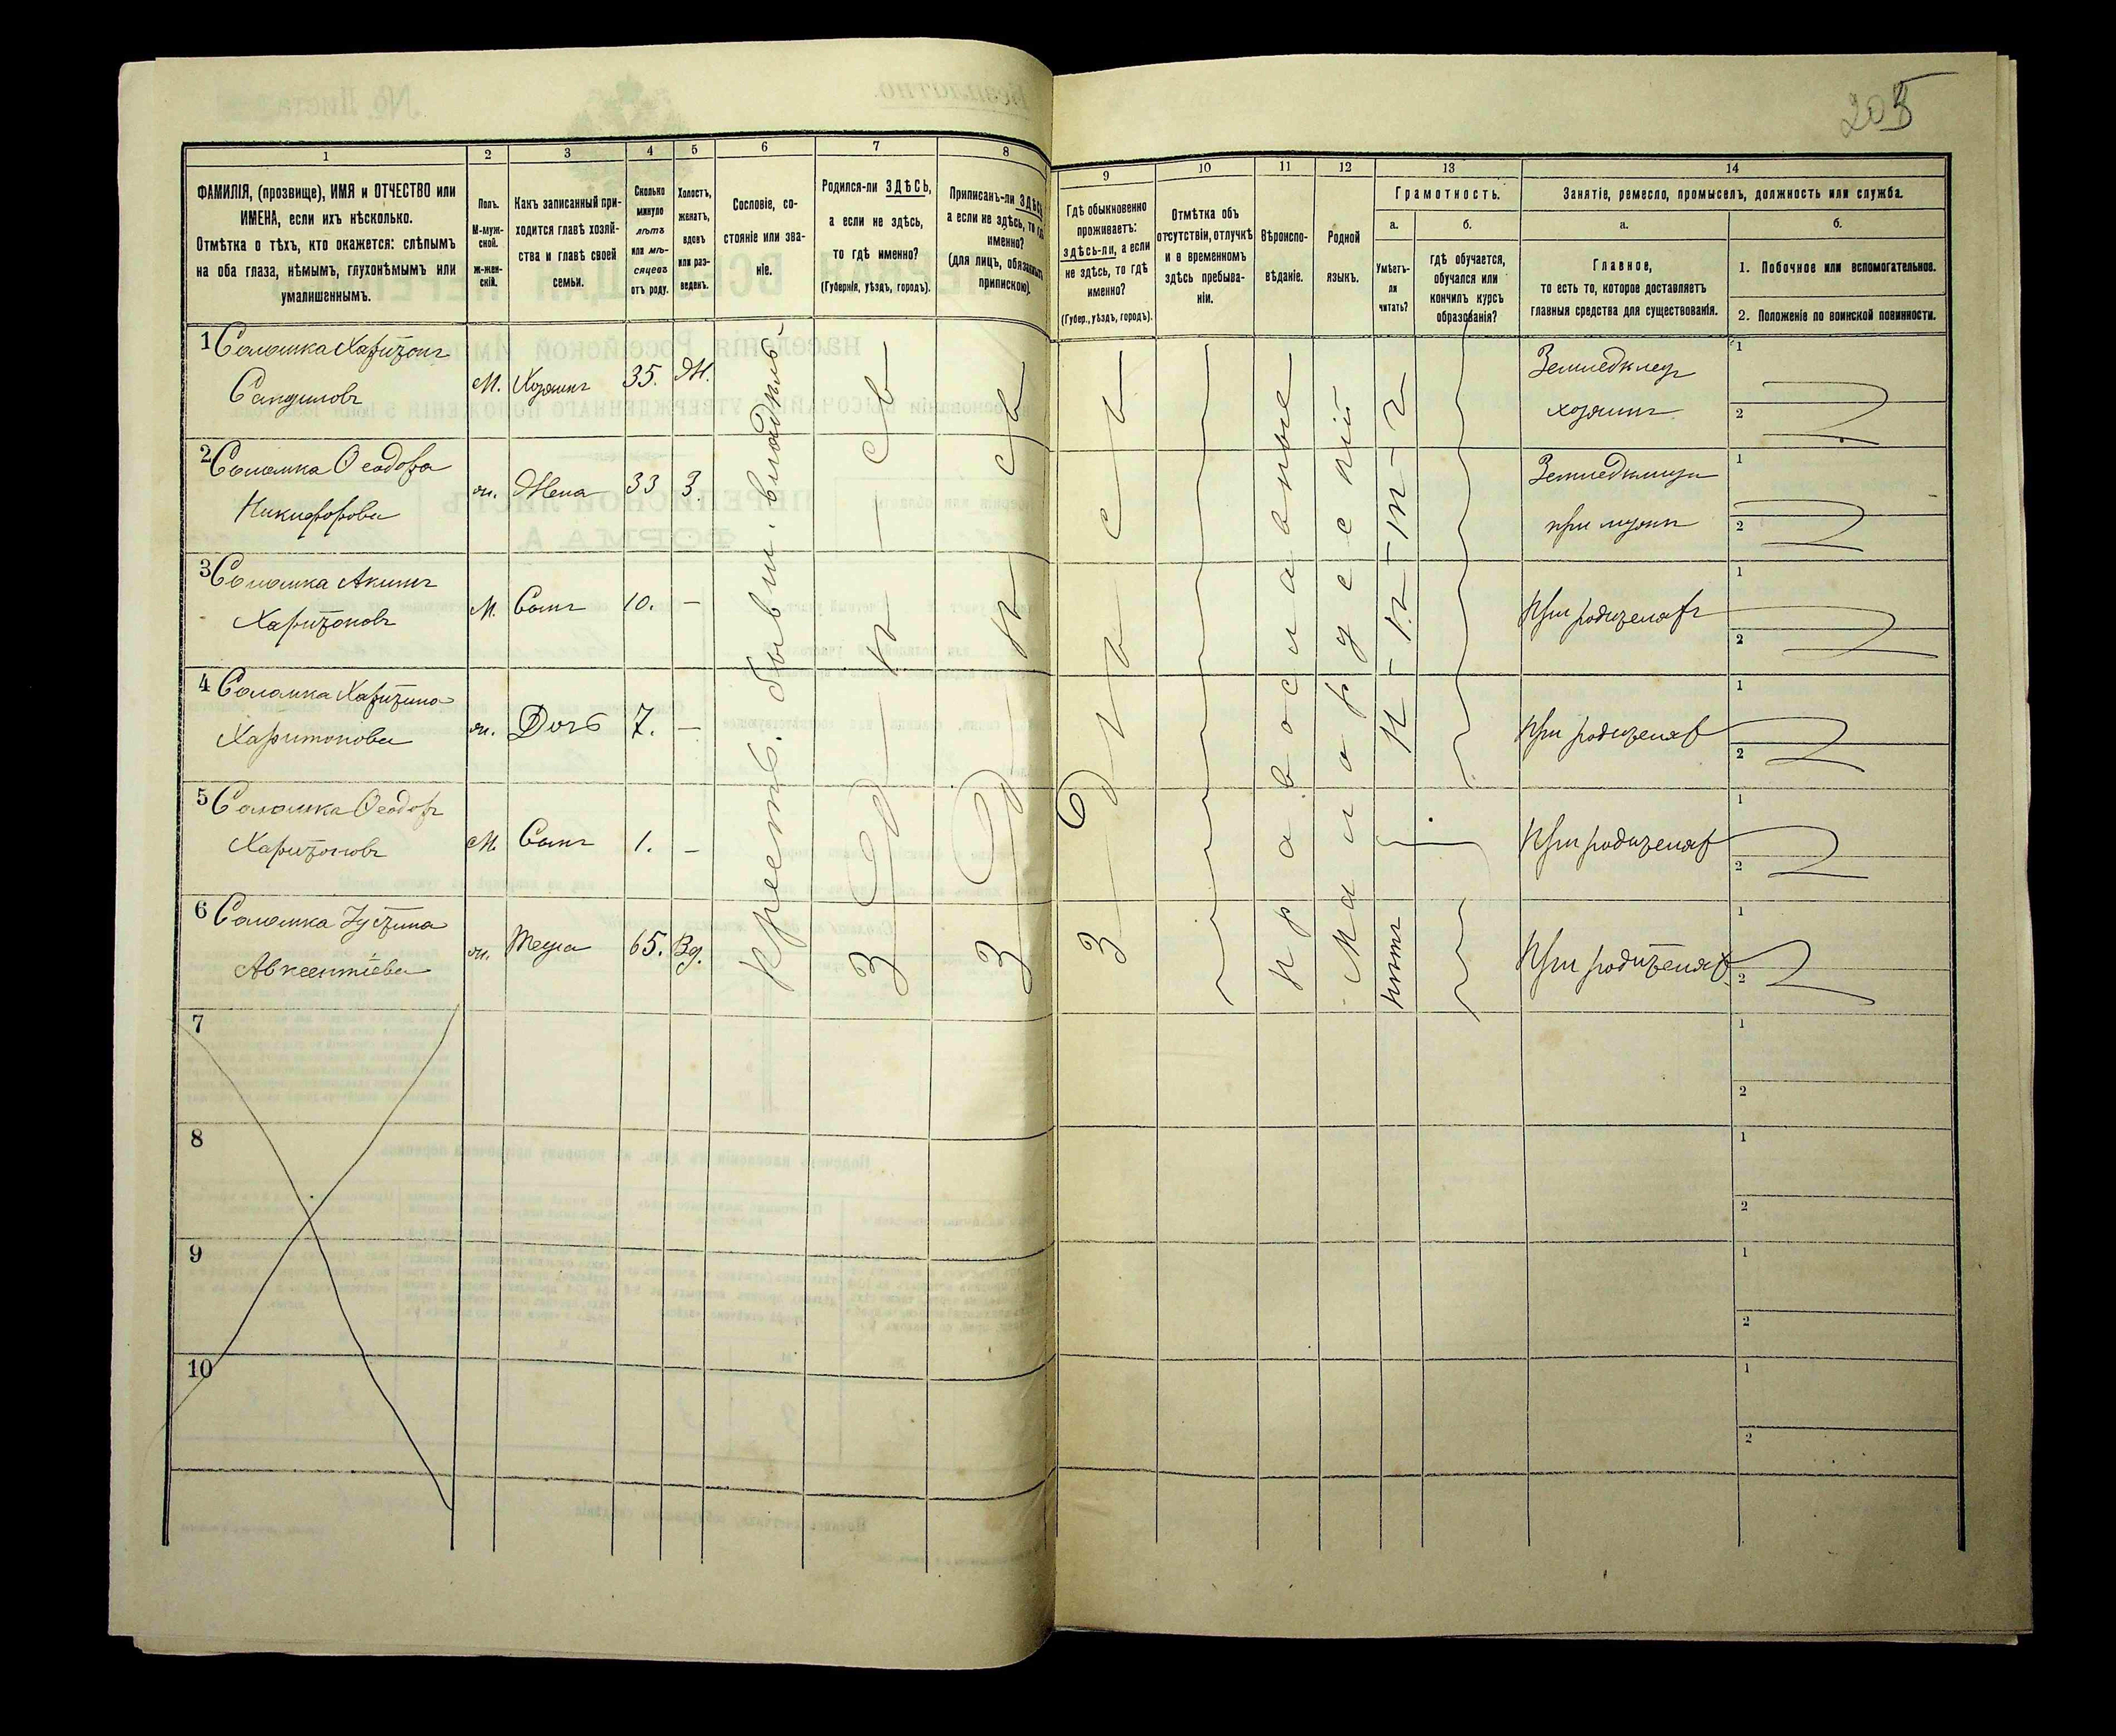 205
1
2
3
4
5
6
7
8
ФАМИЛІЯ, (прозвище), ИМЯ и ОТЧЕСТВО или
ИМЕНА, если ихъ нѣсколько.
Отмѣтка о тѣхъ, кто окажется: слѣпымъ
на оба глаза, нѣмымъ, глухонѣмымъ или
умалишеннымъ.
Полъ.
М-муж-
ской.
ж-жен-
скій.
Какъ записанный при-
ходится главѣ хозяй-
ства и главѣ своей
семьи.
Сколько
минуло
лѣтъ
или мѣ-
сяцевъ
отъ роду.
Холостъ,
женатъ,
вдовъ
или раз-
веденъ.
Сословіе, со-
стояніе или зва-
ніе.
Родился-ли ЗДѢСЬ,
а если не здѣсь,
то гдѣ именно?
(Губернія, уѣздъ, городъ).
Приписанъ-ли ЗДѢСЬ
а если не здѣсь, то гдѣ
именно?
(для лицъ, обязанныхъ
припискою)
9
10
11
12
13
14
Гдѣ обыкновенно
проживаетъ:
здѣсь-ли, а если
не здѣсь, то гдѣ
именно?
(Губер., уѣздъ, городъ).
Отмѣтка объ
отсутствіи, отлучкѣ
и в временномъ
здѣсь пребыва-
ніи.
Вѣроиспо-
вѣданіе.
Родной
языкъ.
Грамотность.
а.
б.
Умѣетъ-
ли
читать?
гдѣ обучается,
обучался или
кончилъ курсъ
образованія?
Занятіе, ремесло, промыселъ, должность или служба.
а.
б.
Главное,
то есть то, которое доставляетъ
главныя средства для существованія.
1. Побочное или вспомогательное.
2. Положеніе по воинской повинности.
1 Соломка Харитонъ
М. Хозяинъ 35. Ж.
2 Соломка Ѳеодора
Никифорова
ж. Жена 33 З.
3 Соломка Акимъ
Харитоновъ
М. Сынъ 10. —
4 Соломка Харитина
Харитонова
ж. Дочь 7. —
5 Соломка Ѳеодоръ
Харитоновъ
М. Сынъ 1. —
6 Соломка Іустина
Авксентіева
ж. Теща 65. Вд.
Крестъ. бывш. владѣль
Здѣсь
Здѣсь
Здѣсь
Православные
Малорусскій
нѣтъ
Земледѣлец
хозяинъ
1
2
при мужѣ
1
2
При родителяхъ
1
2
При родителях
1
2
При родителях
1
2
При родителях
1
2
7
1
2
8
1
2
9
1
2
10
1
2